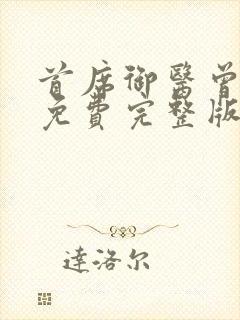 首席御醫曾
免費完整版
達洛尔